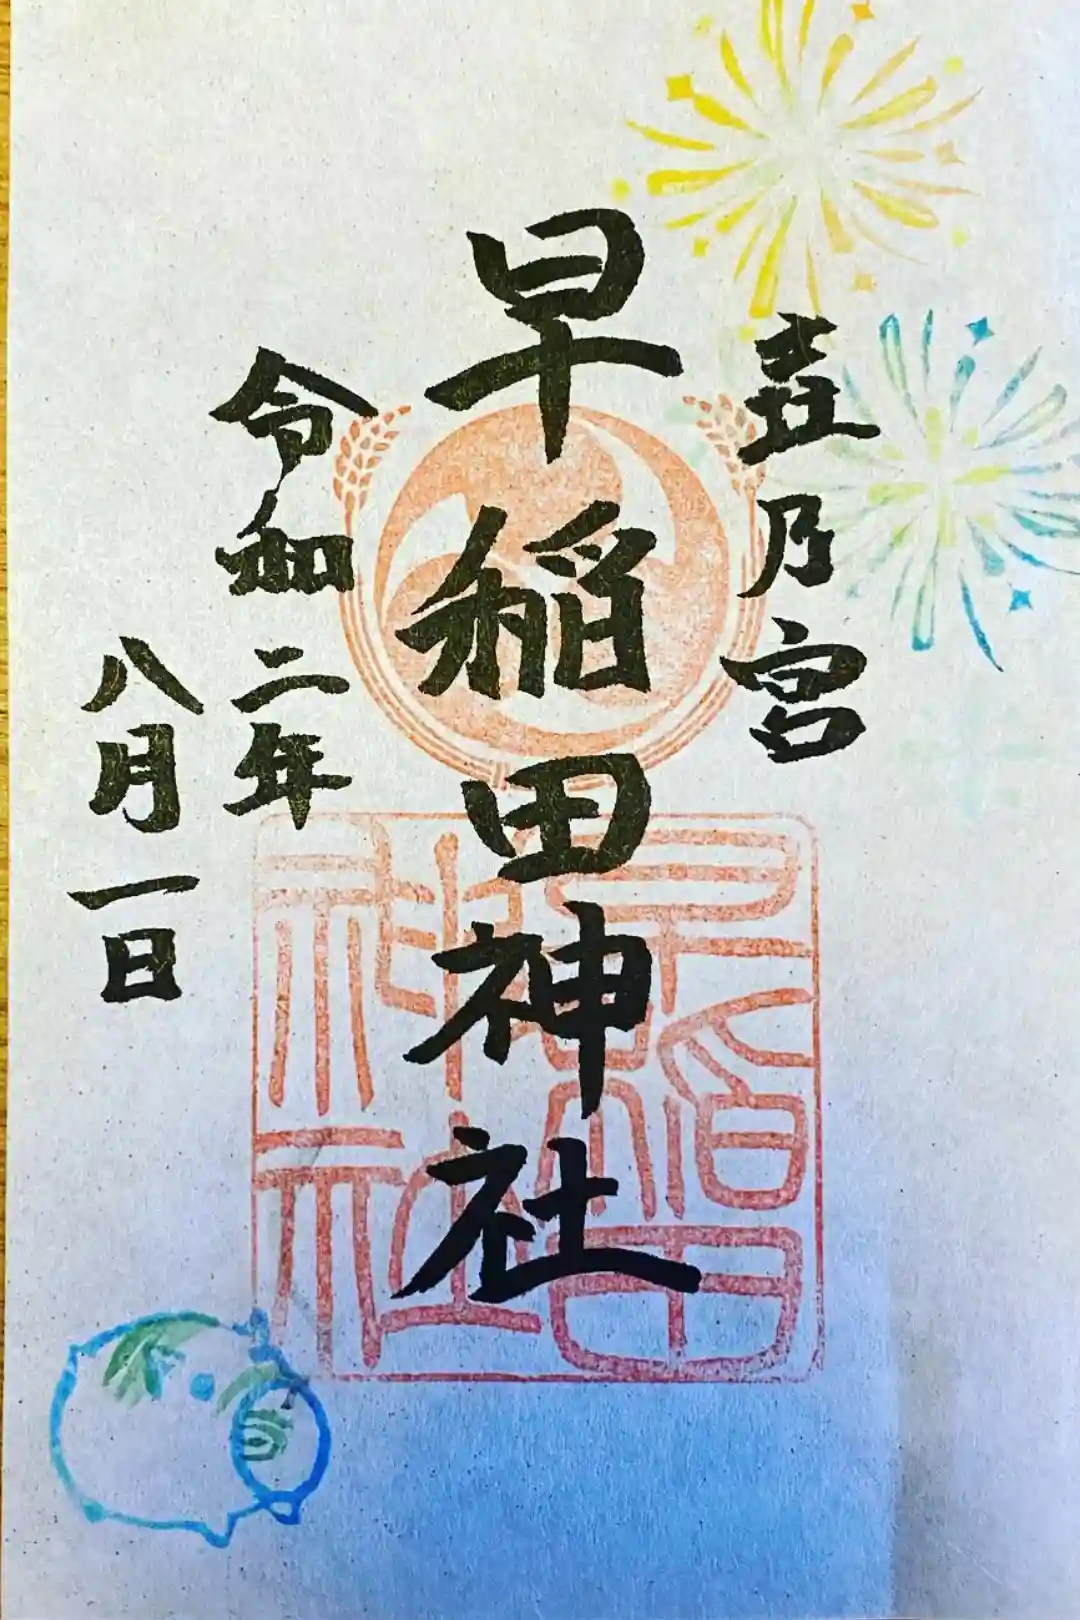 乃宮
早稲田神社
令和二年
八月一日
早稲田
神社